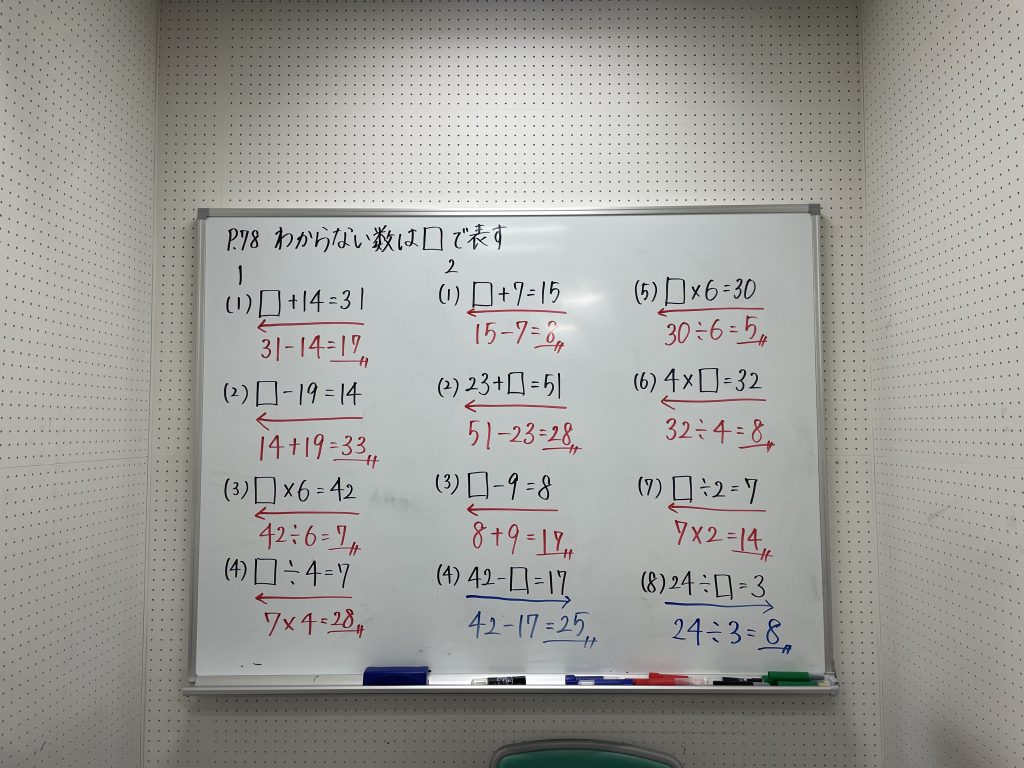 P.78 わからない数は□で表す
1
(1) □+14=31
31-14=17
(2) □-19=14
14+19=33
(3) □×6=42
42÷6=7
(4) □÷4=7
7×4=28
2
(1) □+7=15
15-7=8
(2) 23+□=51
51-23=28
(3) □-9=8
8+9=17
(4) 42-□=17
42-17=25
(5) □×6=30
30÷6=5
(6) 4×□=32
32÷4=8
(7) □÷2=7
7×2=14
(8) 24÷□=3
24÷3=8